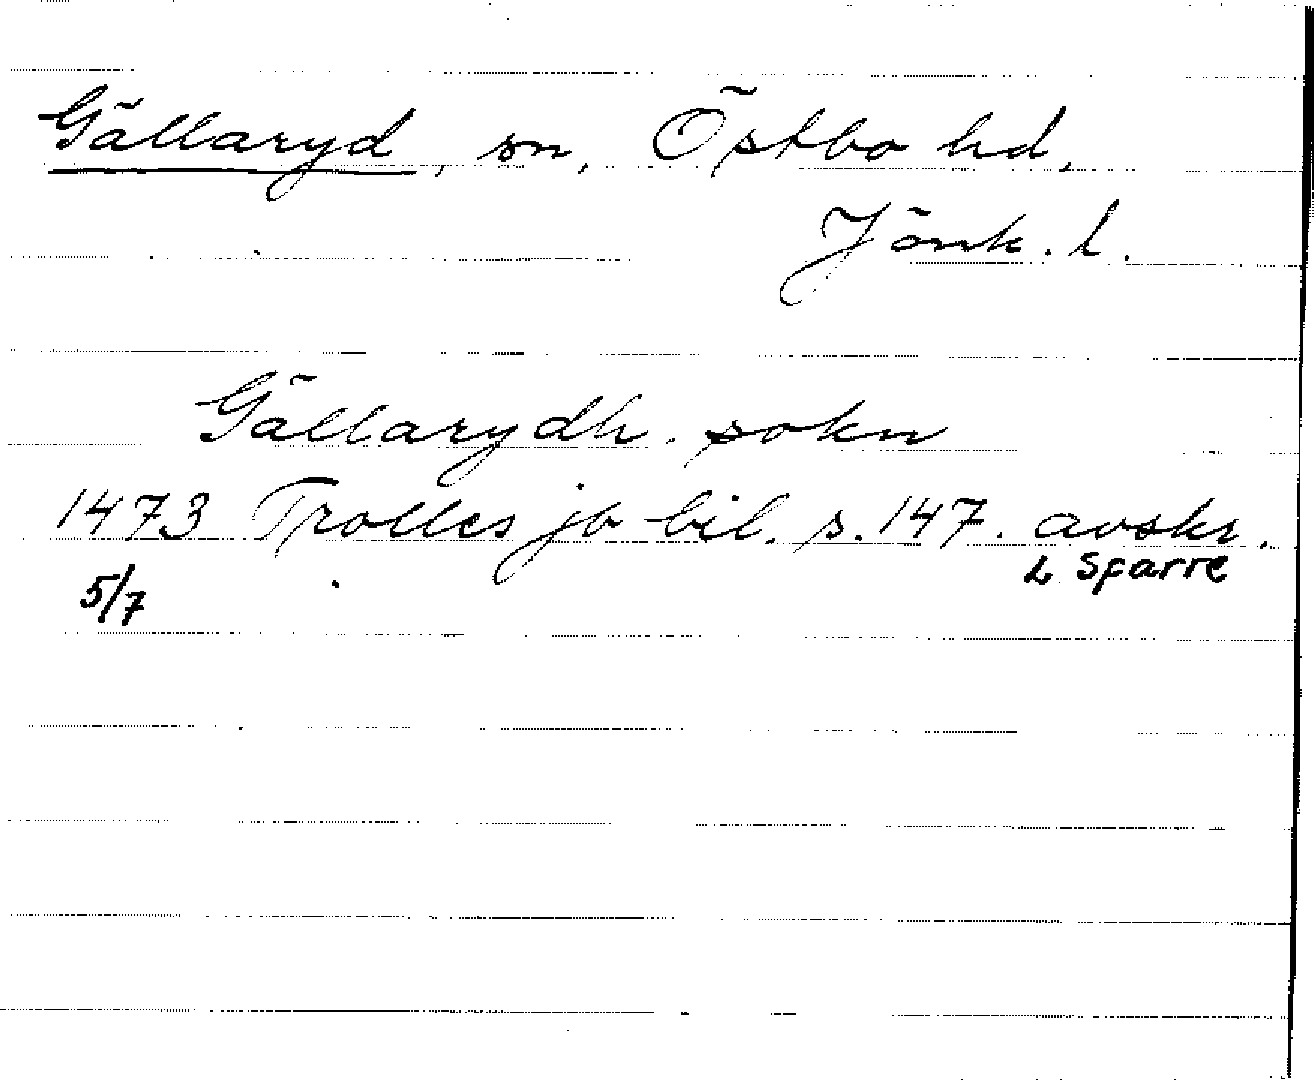 Gällaryd, sn, Östbo hd,
Jönk. l.
Gällarydh. sokn
1473 Trolles jb bil. s. 147. avskr.
5/7 L Sparre